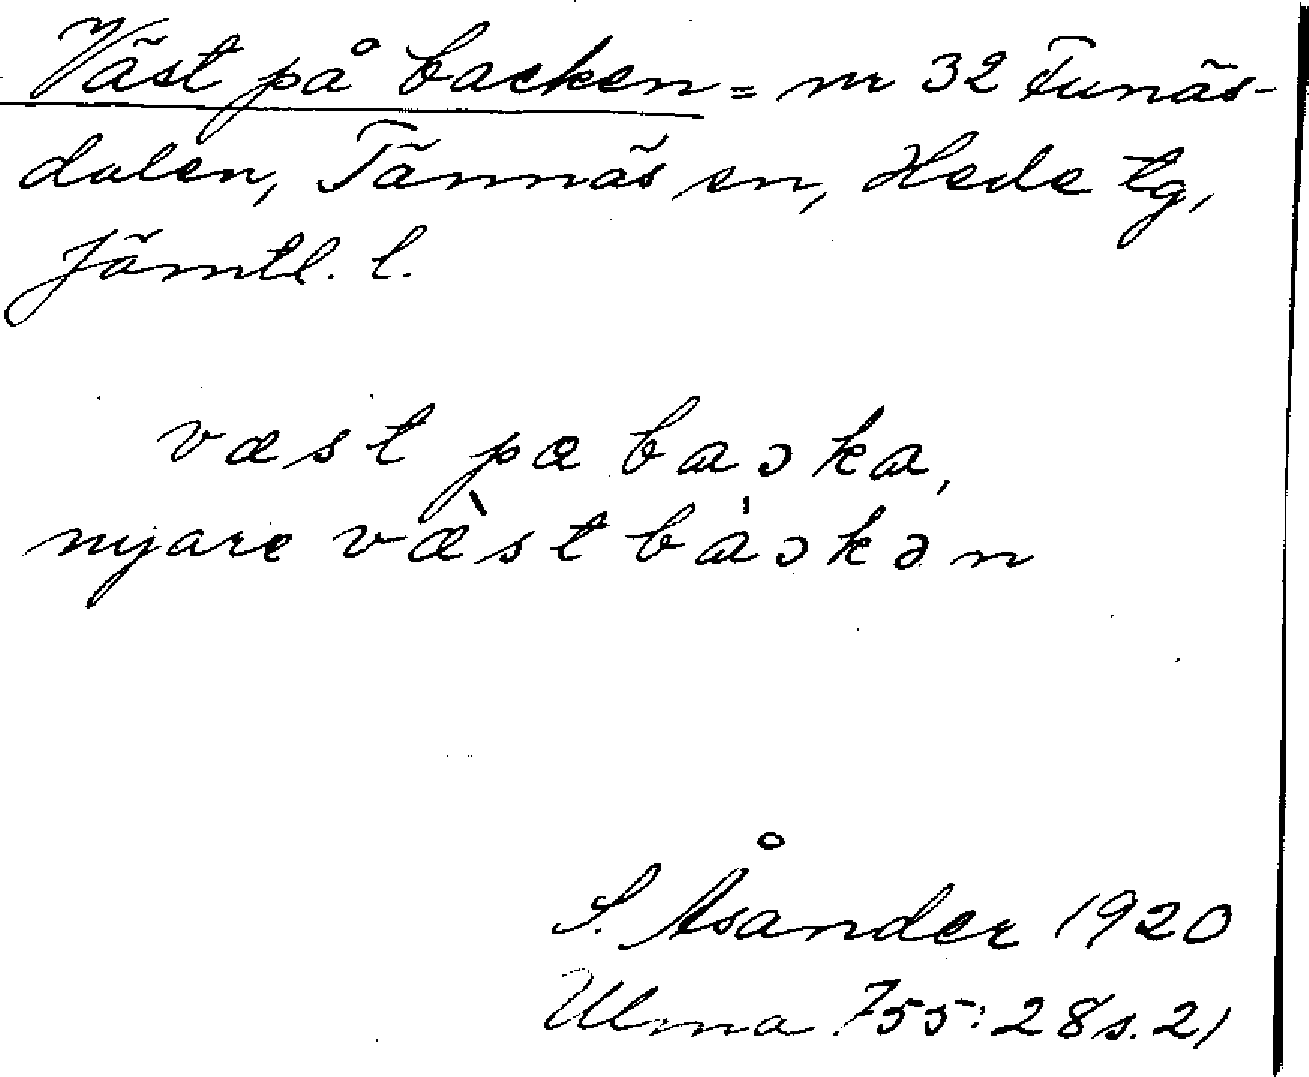 Väst på backen = nr 32 Funäs-
dalen, Tännäs sn, Hede tg,
Jämtl. l.
væst pæ baɔka,
nyare væ̀st bàɔkən
S. Åsander 1920
Ulma 755:28 s. 21